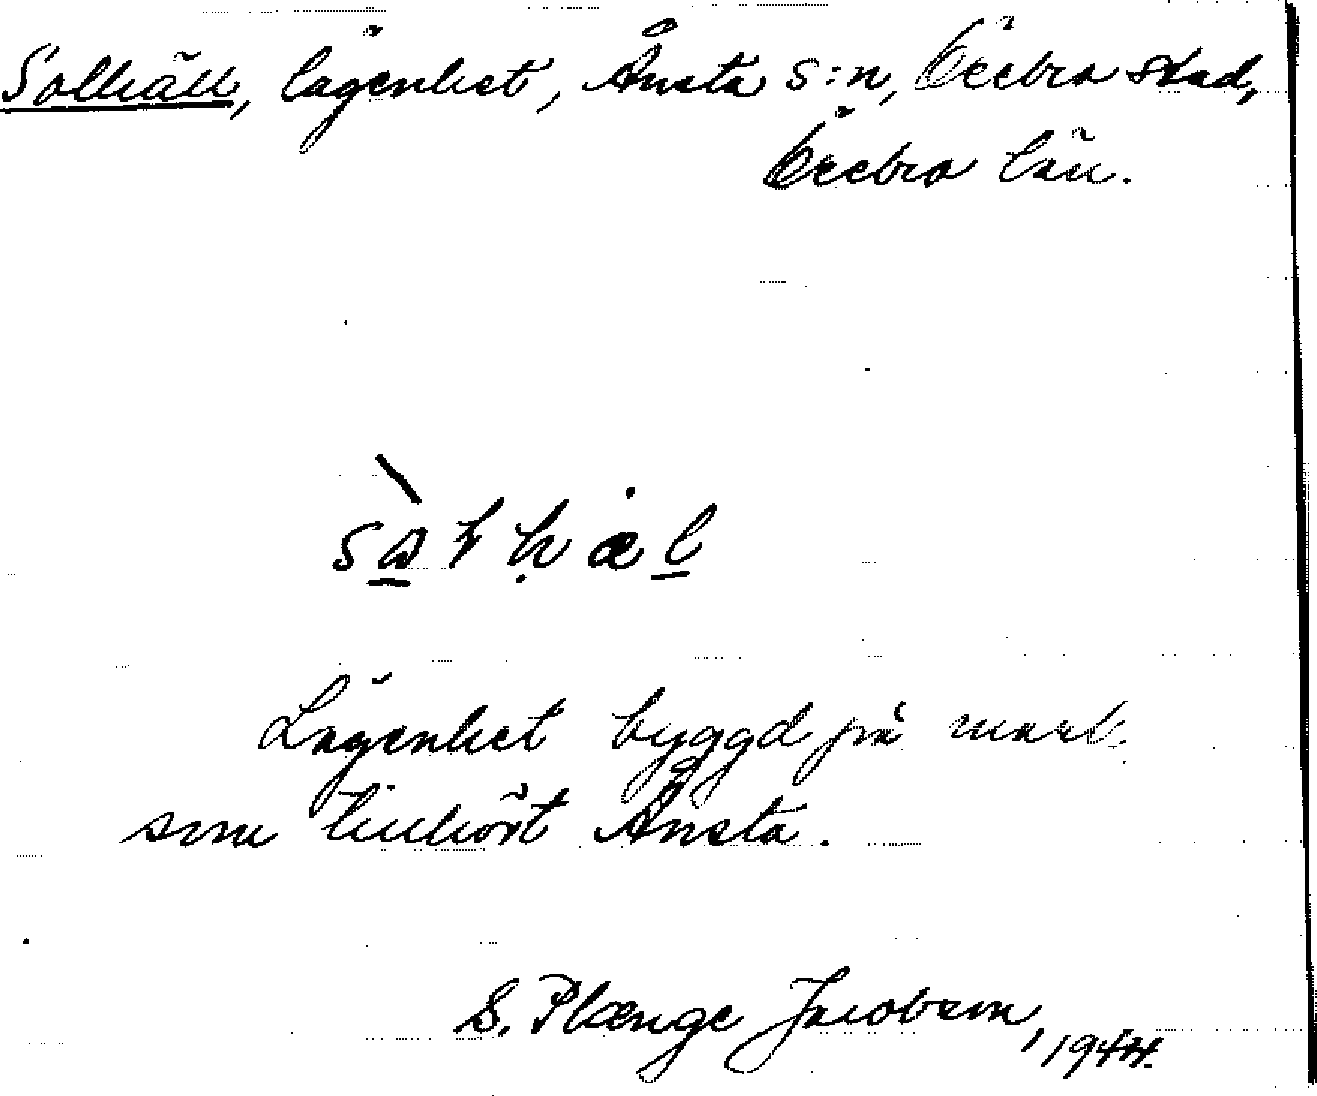 Solhäll, lägenhet, Ånsta s:n, Örebro stad,
Örebro län.
Lägenhet byggd på mark
som tillhört Ånsta.
S. Plænge Jacobson, 1944.